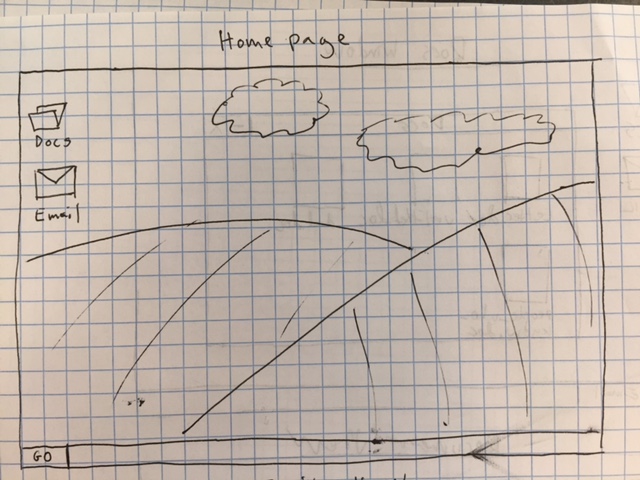 Home page
Docs
Email
GO